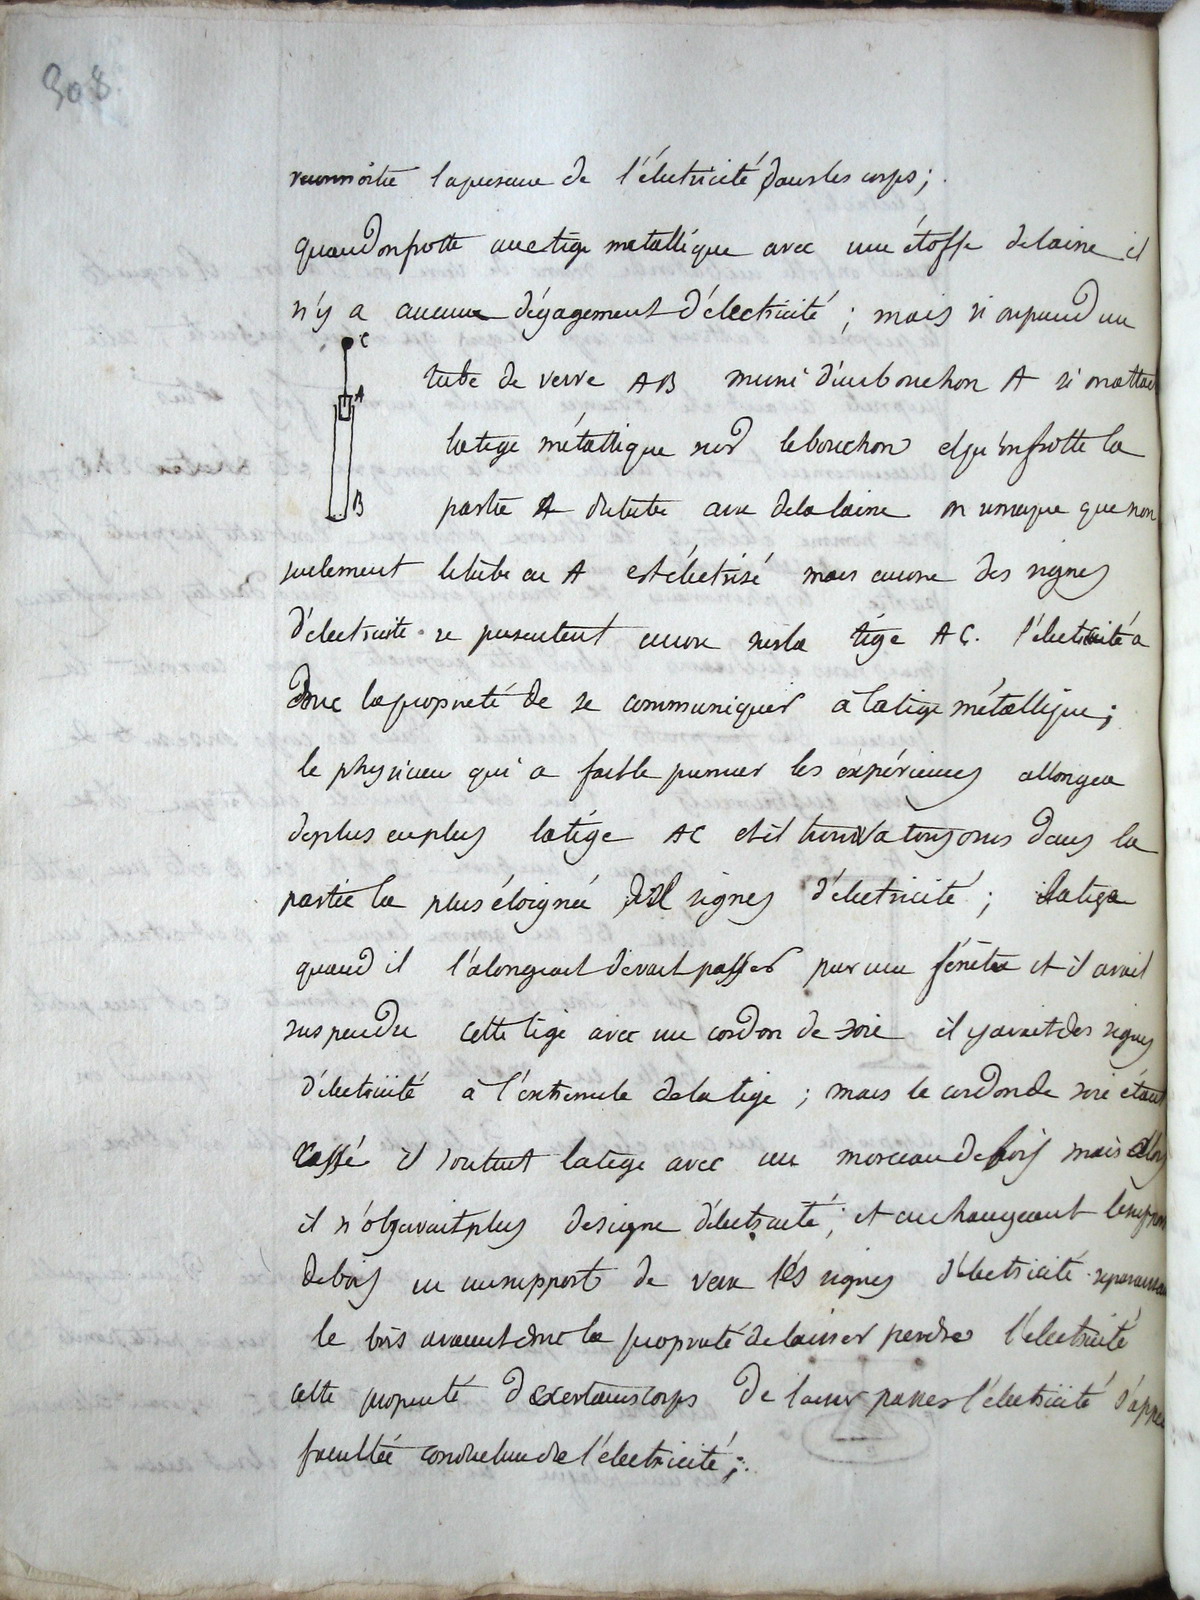 308
reconnoitre la presence de l'électricité dans les corps;
quand on frotte une tige metallique avec une étoffe de laine il
n'y a aucune dégagement d'électricité; mais si on prend un
C
tube de verre AB muni d'un bouchon A si on attache
A
la tige métallique sur le bouchon et qu'on frotte la
B
partie A du tube avec de la laine on remarque que non
seulement le tube en A est électrisé mais encore des signes
d'électricité se presentent encore sur la tige AC. l'électricité a
donc la propriété de se communiquer à la tige métallique;
le physicien qui a fait le premier les expériences allongea
de plus en plus la tige AC et il trouva toujours dans la
partie la plus éloignée des signes d'électricité; la tige
quand il l'alongeait devait passer par une fénêtre et il avait
suspendu cette tige avec un cordon de soie il y avait des signes
d'électricité à l'extremite de la tige; mais le cordon de soie étant
cassé il soutint la tige avec un morceau de bois mais alors
il n'observait plus de signe d'électricité; et en changeant le support
de bois en un support de verre les signes d'électricité reparurent
le bois avaient donc la propriété de laisser perdre l'électricité
cette propriété de certains corps de laisser passer l'électricité s'appelle
facultée conductrice de l'électricité;